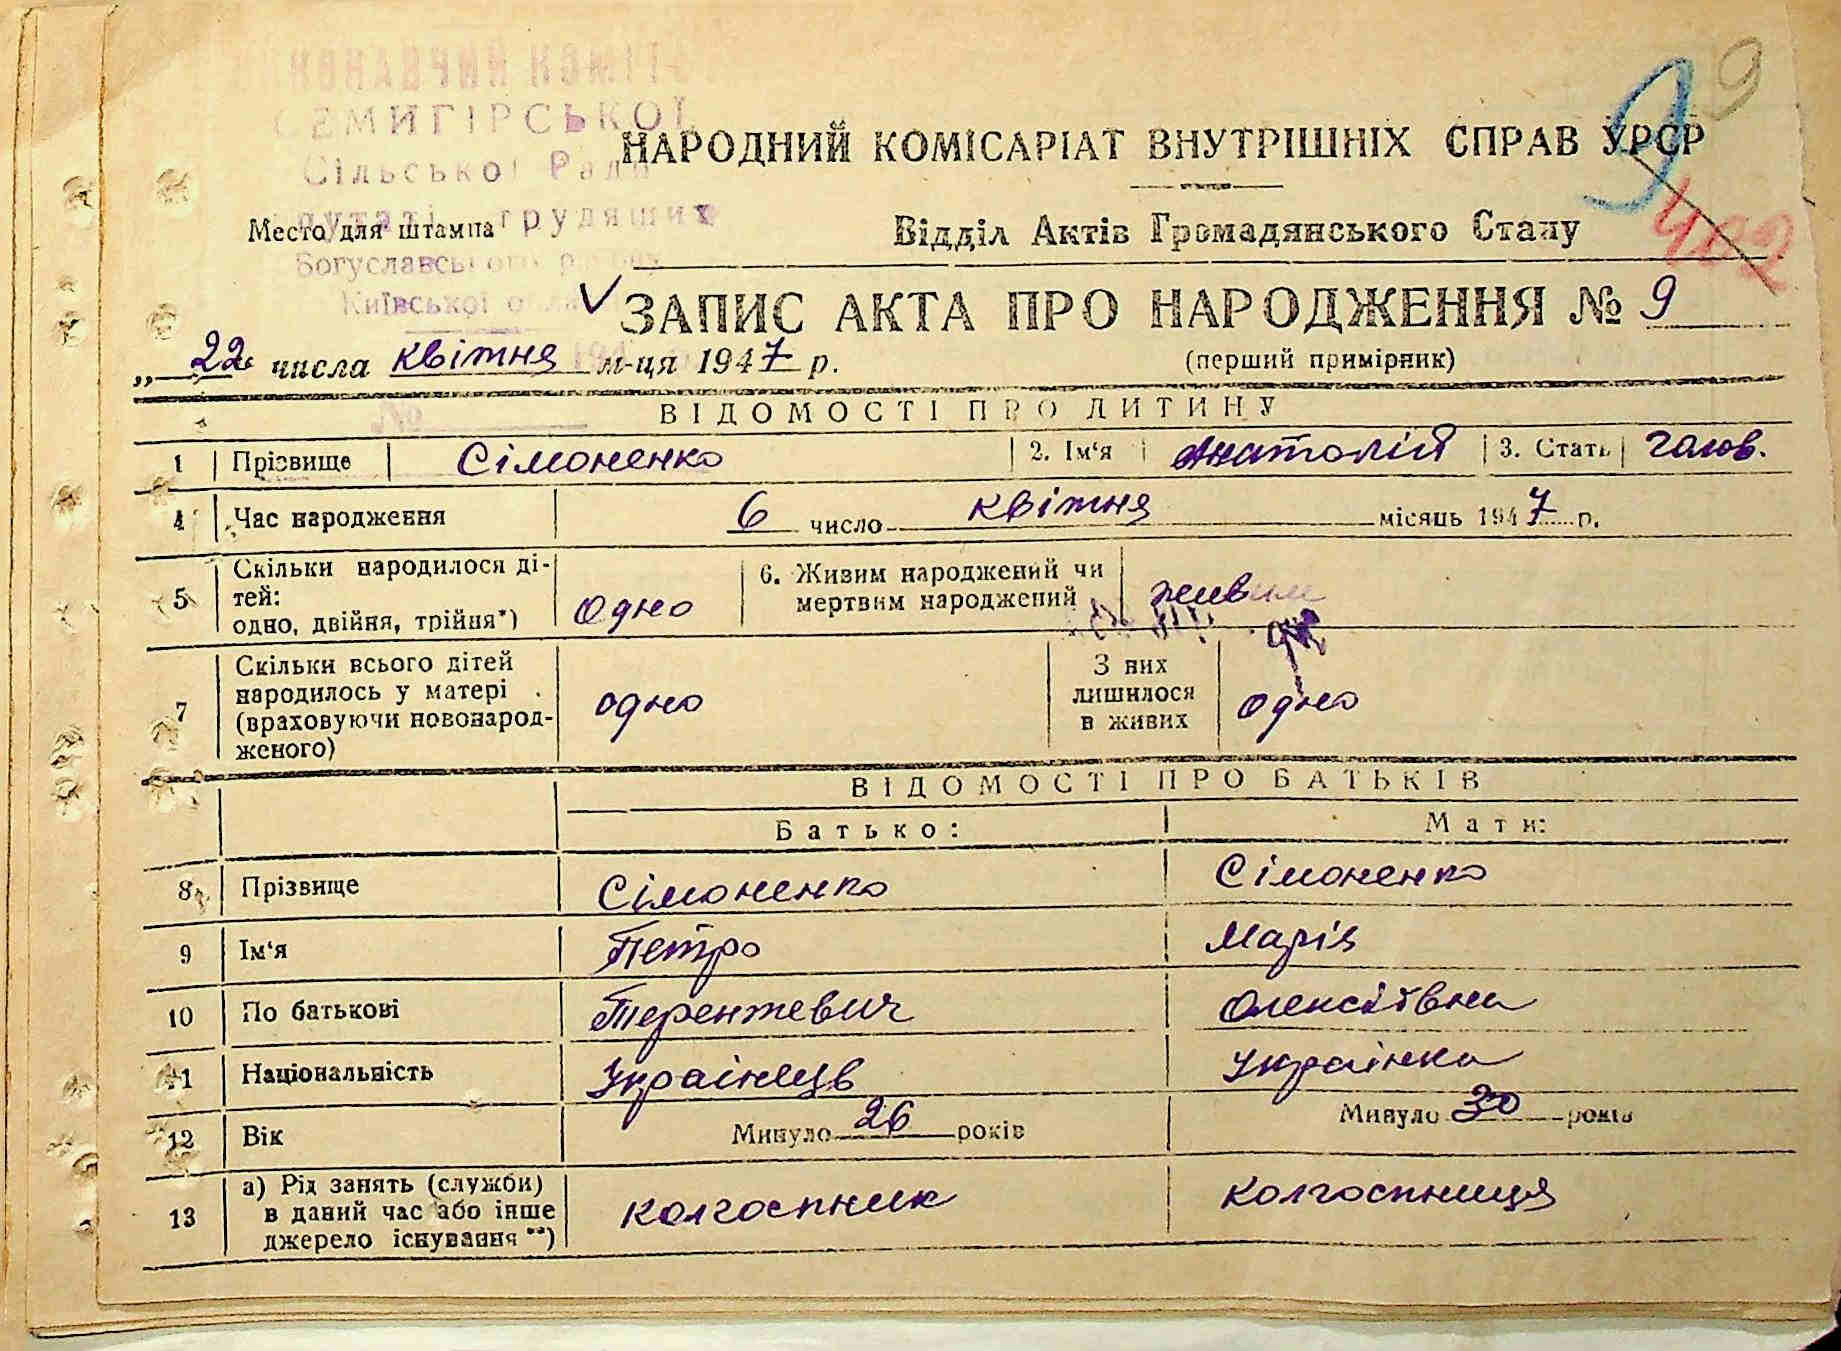 КОНАВЧИЙ КОМІТ
СЕМИГІРСЬКОЇ
Сільської Ради
трудящих
Богуславського
Київської
9
9
402
НАРОДНИЙ КОМІСАРІАТ ВНУТРІШНІХ СПРАВ УРСР
Место для штампа
Відділ Актів Громадянського Стану
ЗАПИС АКТА ПРО НАРОДЖЕННЯ № 9
„ 22 числа квітня м-ця 1947 р.
(перший примірник)
№
ВІДОМОСТІ ПРО ДИТИНУ
1 Прізвище Сімоненко 2. Ім‘я Анатолій 3. Стать чолов.
4 Час народження 6 число квітня місяць 1947 р.
5 Скільки народилося ді-
тей:
одно, двійня, трійня*) одно 6. Живим народжений чи
мертвим народжений живим
7 Скільки всього дітей
народилось у матері
(враховуючи новонарод-
женого) одно З них
лишилося
в живих одно
ВІДОМОСТІ ПРО БАТЬКІВ
Батько: Мати:
8 Прізвище Сімоненко Сімоненко
9 Ім‘я Петро Марія
10 По батькові Терентевич Олексіївна
11 Національність Українець Українка
12 Вік Минуло 26 років Минуло 30 років
13 а) Рід занять (служби)
в даний час або інше
джерело існування **) колгоспник колгоспниця